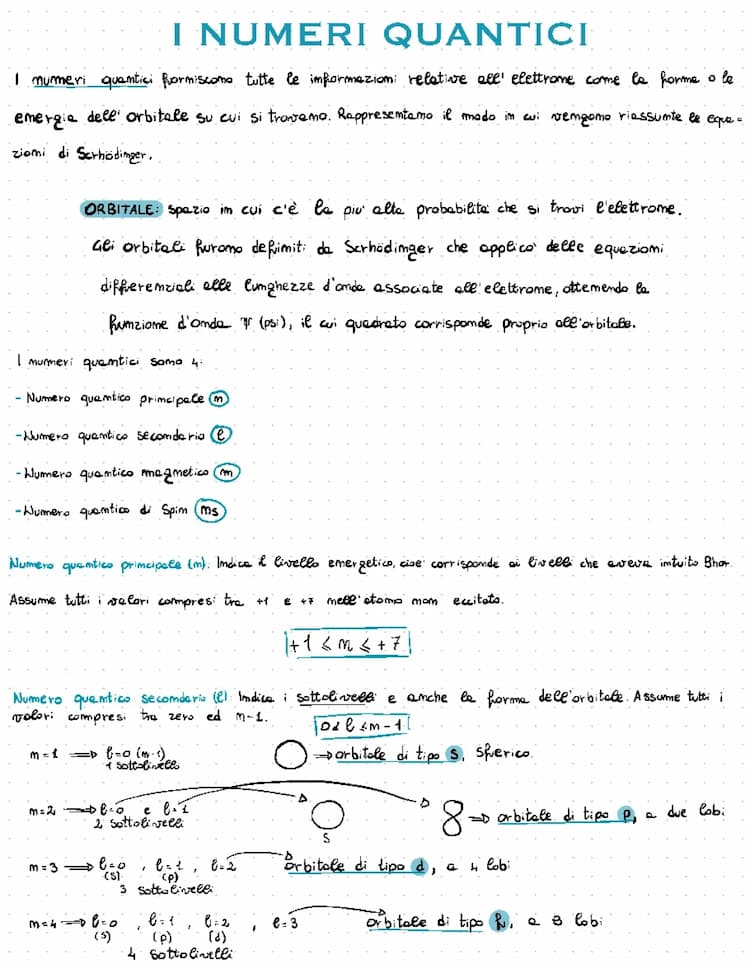 I NUMERI QUANTICI
I numeri quantici forniscono tutte le informazioni relative all' elettrone come la forma o la
energia dell' orbitale su cui si trovano. Rappresentano il modo in cui vengono riassunte le equa-
zioni di Scrhödinger.
ORBITALE: spazio in cui c'è la piu' alta probabilità che si trovi l'elettrone.
Gli orbitali furono definiti da Scrhödinger che applico' delle equazioni
differenziali alle lunghezze d'onda associate all'elettrone, ottenendo la
funzione d'onda Ψ (psi), il cui quadrato corrisponde proprio all'orbitale.
I numeri quantici sono 4:
- Numero quantico principale n
- Numero quantico secondario l
- Numero quantico magnetico m
- Numero quantico di Spin ms
Numero quantico principale (n): Indica il livello energetico, cioe' corrisponde ai livelli che aveva intuito Bhor.
Assume tutti i valori compresi tra +1 e +7 nell'atomo non eccitato.
+1 ≤ n ≤ +7
Numero quantico secondario (l): Indica i sottolivelli e anche la forma dell'orbitale. Assume tutti i
valori compresi tra zero ed n-1.
0≤ l ≤ n-1
n=1 ⇒ l=0 (n-1) → orbitale di tipo s, sferico.
1 sottolivello
n=2 ⇒ l=0 e l=1 ⇒ orbitale di tipo p, a due lobi
2 sottolivelli
S
n=3 ⇒ l=0, l=1, l=2 orbitale di tipo d, a 4 lobi
(s) (p)
3 sottolivelli
n=4 ⇒ l=0, l=1, l=2, l=3 orbitale di tipo f, a 8 lobi
(s) (p) (d)
4 sottolivelli